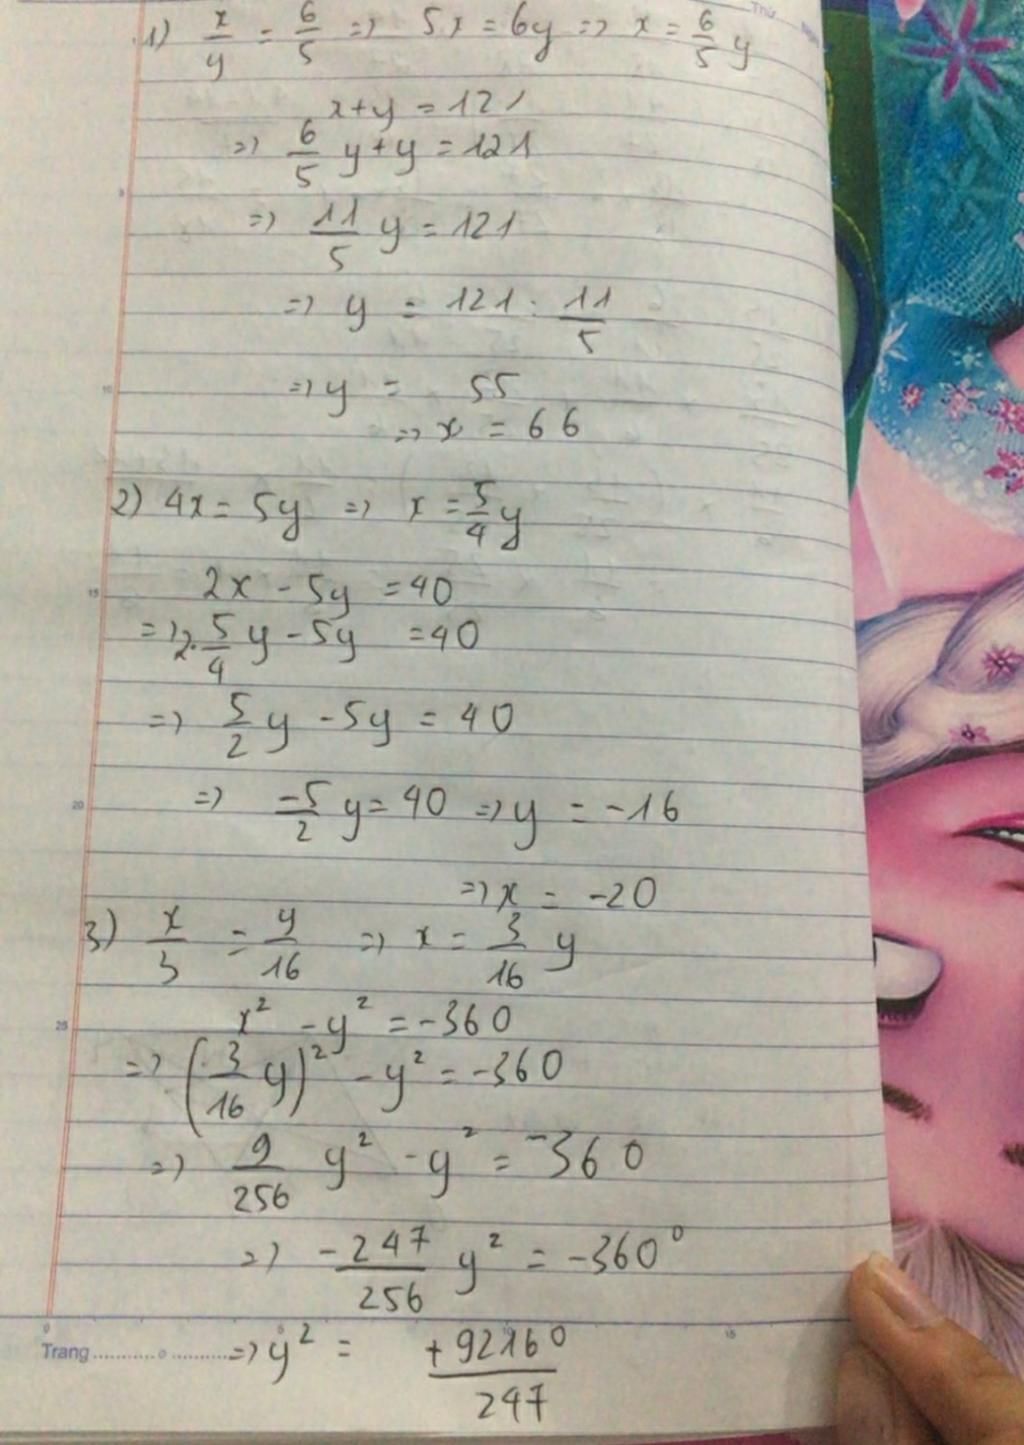 Thứ
1) x/y = 6/5 => 5x = 6y => x = 6/5 y
x+y = 121
=> 6/5 y + y = 121
=> 11/5 y = 121
=> y = 121 : 11/5
=> y = 55
=> x = 66
2) 4x = 5y => x = 5/4 y
2x - 5y = 40
=> 2. 5/4 y - 5y = 40
=> 5/2 y - 5y = 40
=> -5/2 y = 40 => y = -16
=> x = -20
3) x/3 = y/16 => x = 3/16 y
x² - y² = -360
=> (3/16 y)² - y² = -360
=> 9/256 y² - y² = -360
=> -247/256 y² = -360⁰
=> y² = +92160/247
Trang